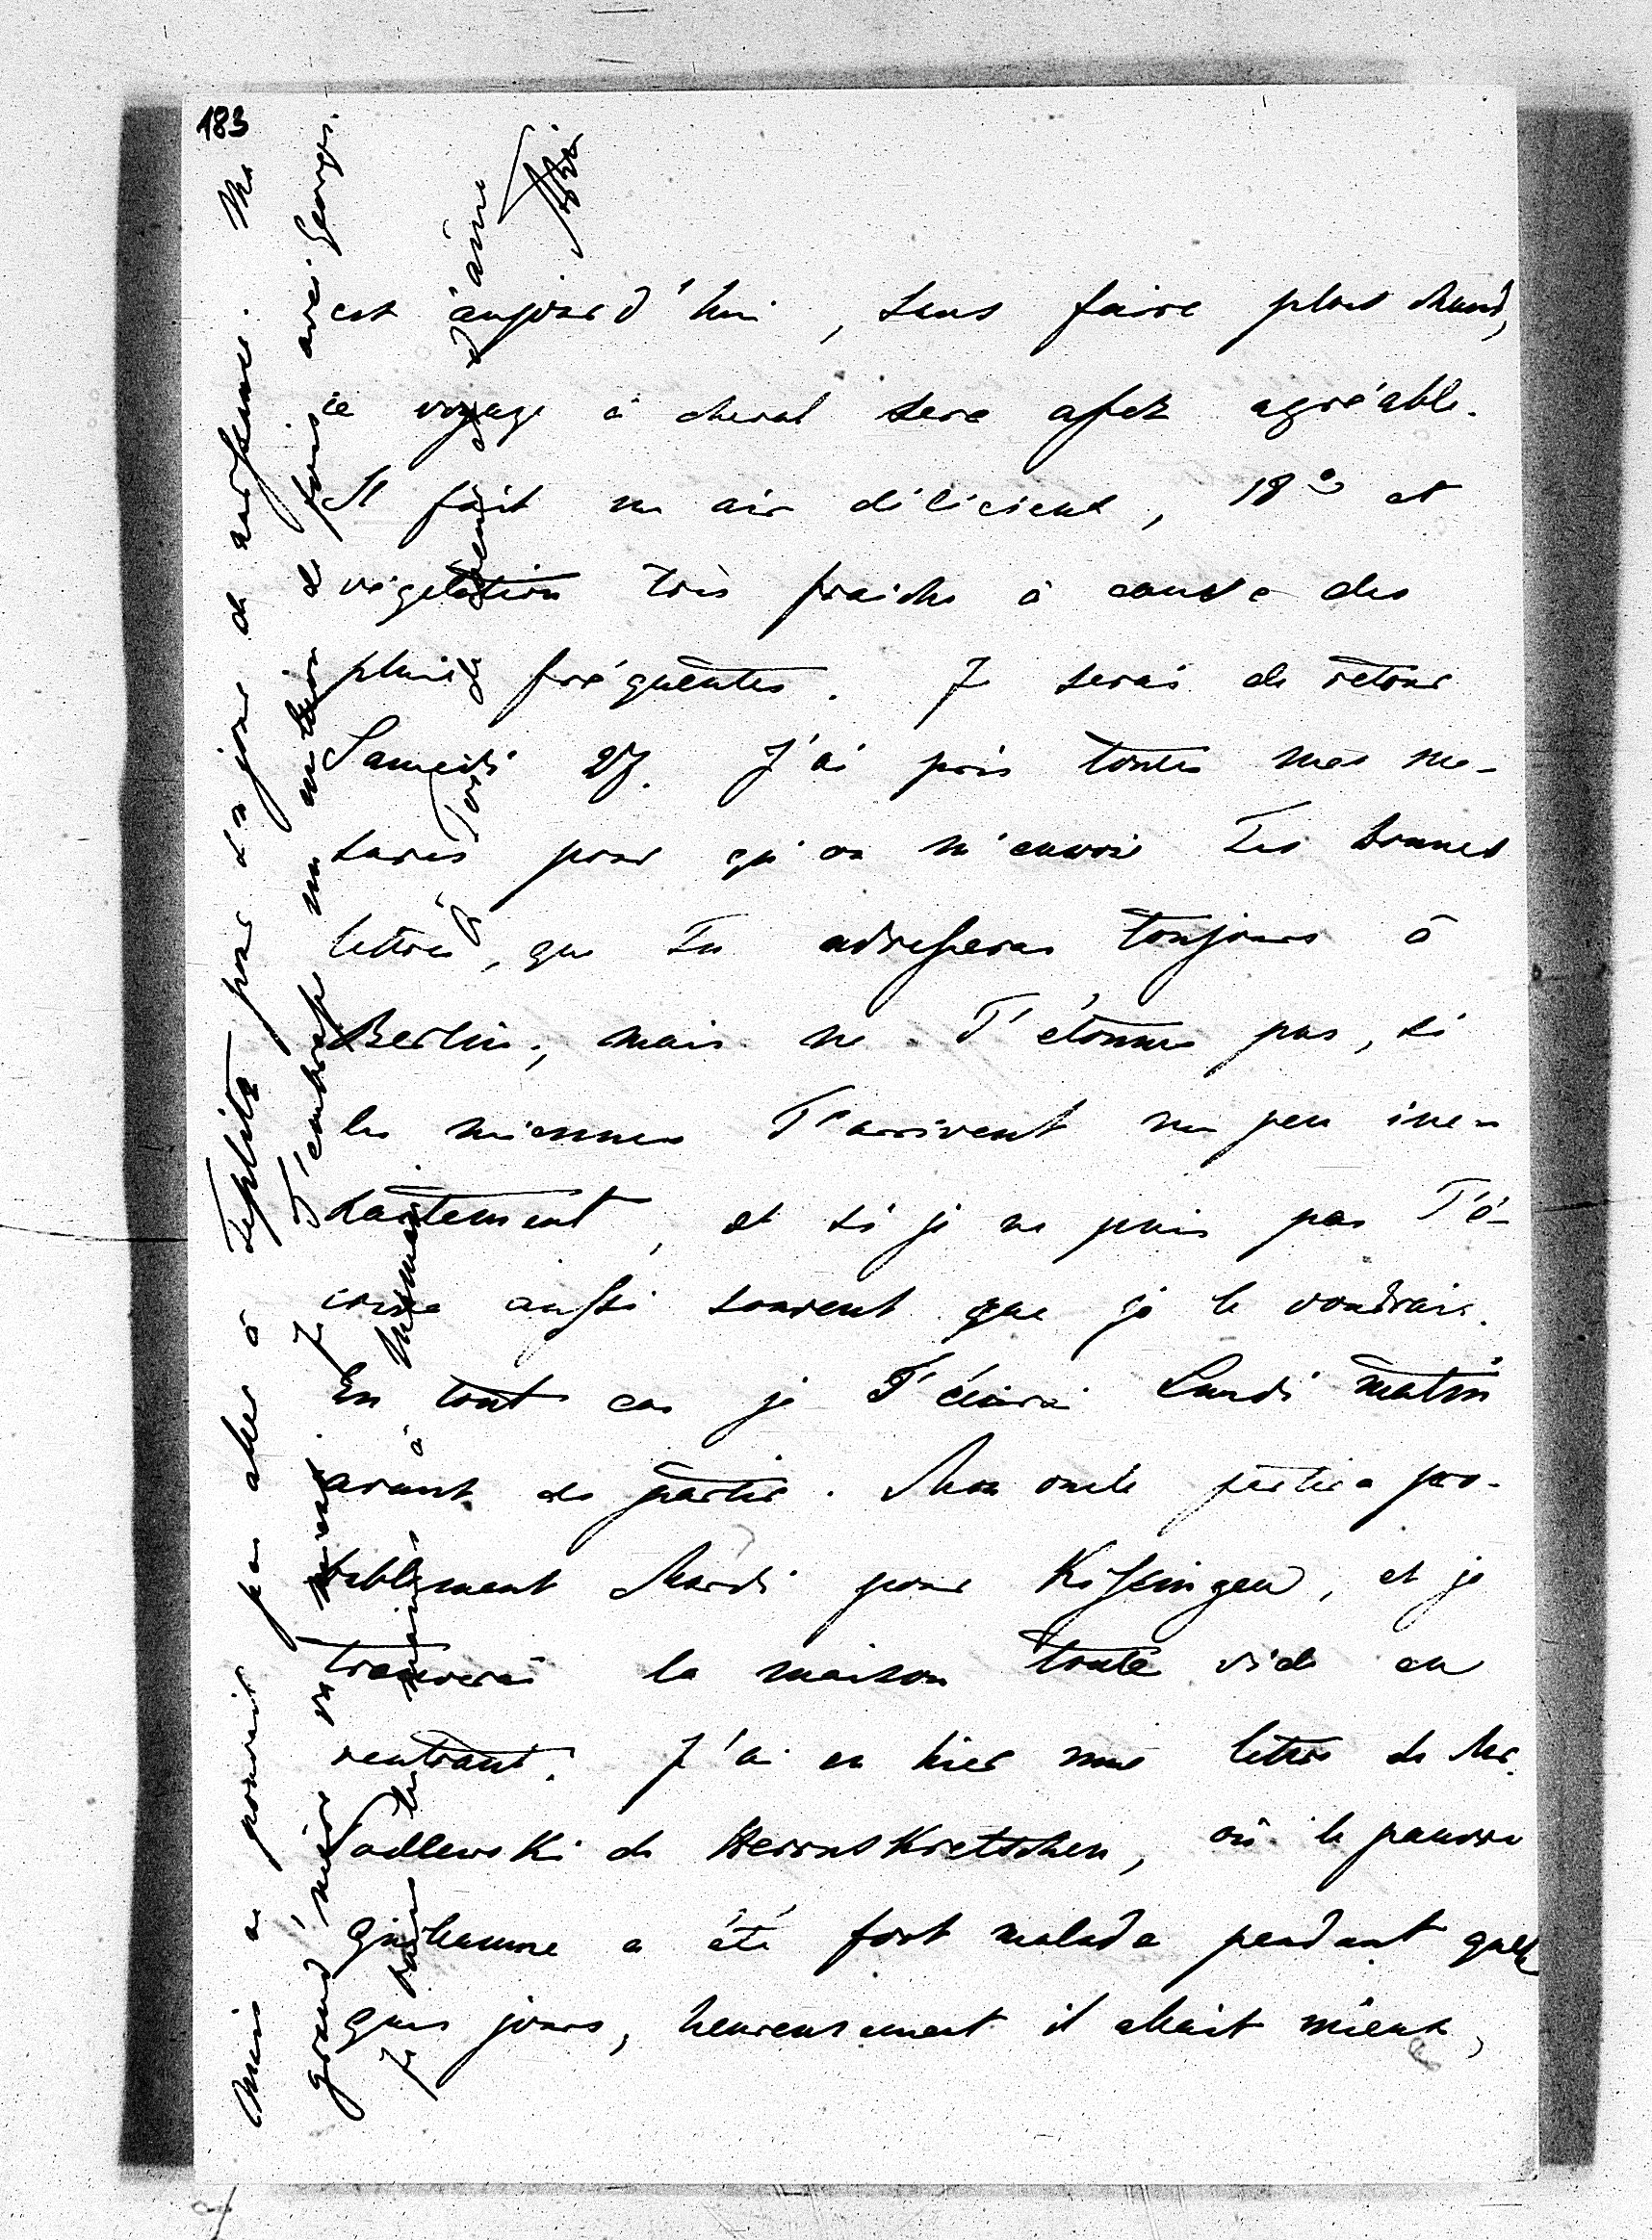 183
est aujourd'hui, sans faire plus chaud,
ce voyage à cheval sera assez agréable.
Il fait un air délicieux, 18° et
végétation très fraiche à cause des
pluies fréquentes. Je serai de retour
Samedi 27. J'ai pris toutes mes me-
sures pour qu'on m'envoie Tes bonnes
lettres, que Tu adresseras toujours à
Berlin; mais ne T'étonne pas, si
les miennes T'arrivent un peu ine-
xactement, et si je ne puis pas T'é-
crire aussi souvent que je le voudrais.
En tout cas je T'écrirai Lundi matin
avant de partir. Mon oncle partira pro-
bablement Mardi pour Kissingen, et je
trouverai la maison toute vide en
rentrant. J'ai eu hier une lettre de Mr.
Sadlewski de Herrnskretschen, où le pauvre
Guillaume a été fort malade pendant quel-
ques jours, heureusement il allait mieux,
Mais ne pourrait pas aller à Teplitz pour le jour de naissance. Ma
grand'mère va mieux. Je T'embrasse un million de fois avec Georges.
Je baise les mains à Maman
à Toi de d'âme